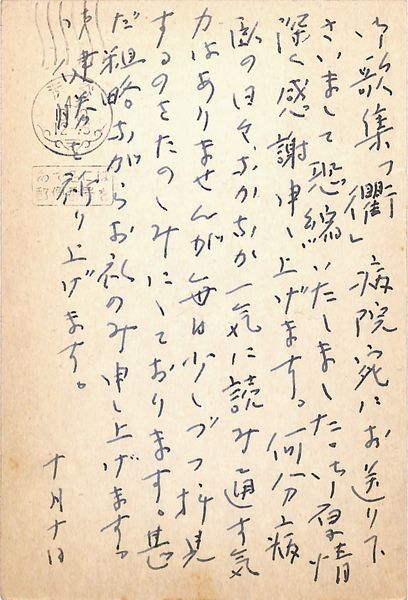 御歌集「衢」病院宛にお送り下
さいまして恐縮いたしました。御厚情
深く感謝申し上げます。何分病
臥の日々なかなか一気に読み通す気
力はありませんが毎日少しづつ拝見
するのをたのしみにしております。甚
だ粗略ながらお礼のみ申し上げます。
御健勝を祈り上げます。
十月十日
あて名は
郵便番号を